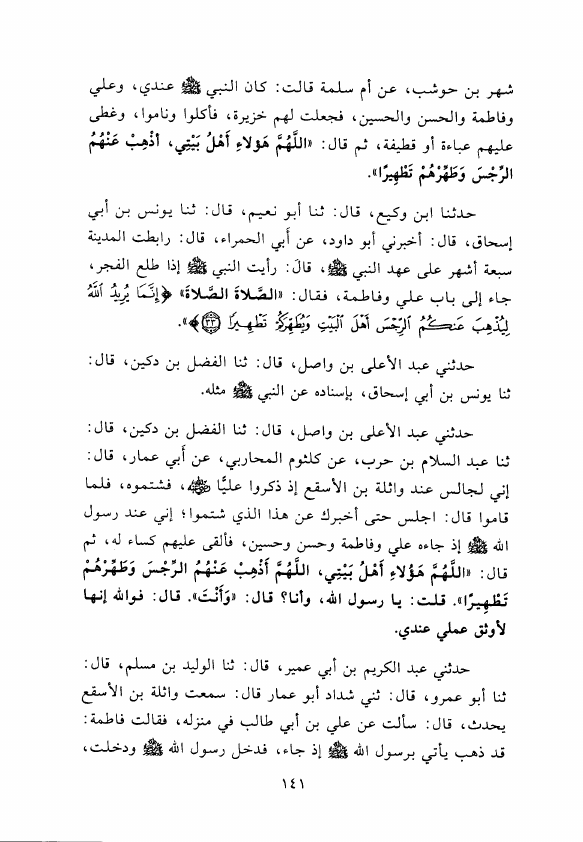 شهر بن حوشب، عن أم سلمة قالت: كان النبي ﷺ عندي، وعلي
وفاطمة والحسن والحسين، فجعلت لهم خزيرة، فأكلوا وناموا، وغطى
عليهم عباءة أو قطيفة، ثم قال: «اللَّهُمَّ هَؤلاءِ أَهْلُ بَيْتِي، أذْهِبْ عَنْهُمُ
الرِّجْسَ وَطَهِّرْهُمْ تَطْهِيرًا».
حدثنا ابن وكيع، قال: ثنا أبو نعيم، قال: ثنا يونس بن أبي
إسحاق، قال: أخبرني أبو داود، عن أَبي الحمراء، قال: رابطت المدينة
سبعة أشهر على عهد النبي ﷺ، قالَ: رأيت النبي ﷺ إذا طلع الفجر،
جاء إلى باب علي وفاطمة، فقال: «الصَّلاةَ الصَّلاةَ» ﴿إِنَّمَا يُرِيدُ اللَّهُ
لِيُذْهِبَ عَنكُمُ الرِّجْسَ أَهْلَ الْبَيْتِ وَيُطَهِّرَكُمْ تَطْهِيرًا ۝٣٣﴾».
حدثني عبد الأعلى بن واصل، قال: ثنا الفضل بن دكين، قال:
ثنا يونس بن أبي إسحاق، بإسناده عن النبي ﷺ مثله.
حدثني عبد الأعلى بن واصل، قال: ثنا الفضل بن دكين، قال:
ثنا عبد السلام بن حرب، عن كلثوم المحاربي، عن أَبي عمار، قال:
إني لجالس عند واثلة بن الأسقع إذ ذكروا عليًّا رضي الله عنه، فشتموه، فلما
قاموا قال: اجلس حتى أخبرك عن هذا الذي شتموا؛ إني عند رسول
الله ﷺ إذ جاءه علي وفاطمة وحسن وحسين، فألقى عليهم كساء له، ثم
قال: «اللَّهُمَّ هَؤُلاءِ أَهْلُ بَيْتِي، اللَّهُمَّ أَذْهِبْ عَنْهُمُ الرِّجْسَ وَطَهِّرْهُمْ
تَطْهِيرًا». قلت: يا رسول الله، وأنا؟ قال: «وَأَنْتَ». قال: فوالله إنها
لأوثق عملي عندي.
حدثني عبد الكريم بن أبي عمير، قال: ثنا الوليد بن مسلم، قال:
ثنا أبو عمرو، قال: ثني شداد أبو عمار قال: سمعت واثلة بن الأسقع
يحدث، قال: سألت عن علي بن أبي طالب في منزله، فقالت فاطمة:
قد ذهب يأتي برسول الله ﷺ إذ جاء، فدخل رسول الله ﷺ ودخلت،
١٤١